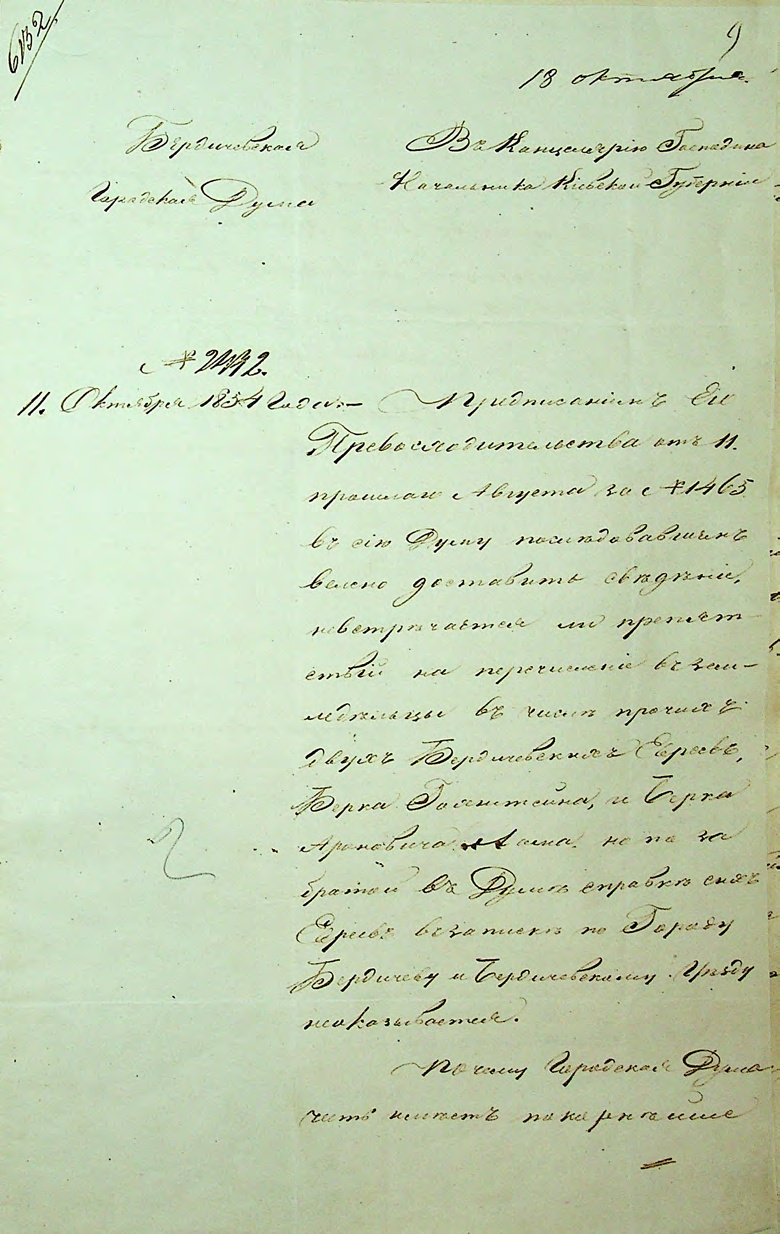 6132
9
18 октября
Бердичевская
Городская Дума
Въ Канцелярію Господина
Начальника Кіевской Губерніи
№ 2442.
11. Октября 1834 Года.—
Предписаніемъ Его
Превосходительства отъ 11.
прошлаго Августа за № 1465
въ сію Думу последовавшимъ
велено доставить сведеніи,
невстречается ли препят-
ствій на перечисленіе въ зем-
ледельцы въ числе прочихъ
двухъ Бердичевскихъ Евреевъ,
Берка Голяштейна, и Берка
Ароновича но по за
братой въ Думе справке сихъ
Евреевъ въ записке по Городу
Бердичеву и Бердичевскому Уезду
неоказывается.
Почему Городская Дума
честь имеетъ покорнейше